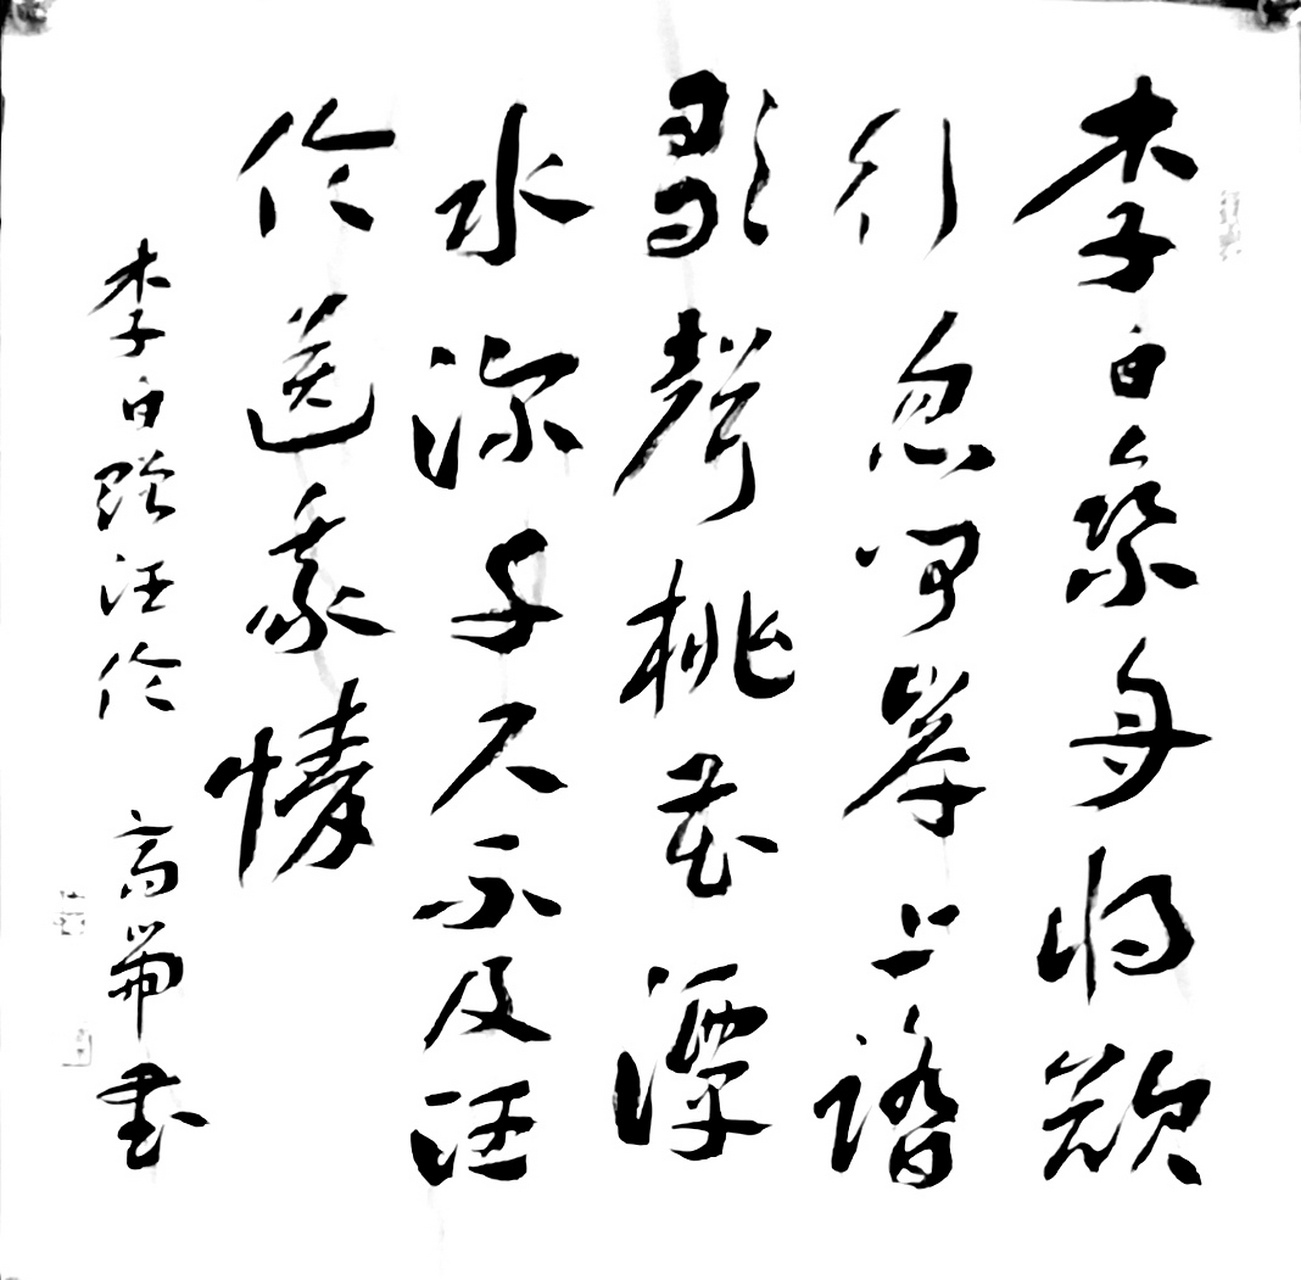 李白乘舟将欲
行忽闻岸上踏
歌聲桃花潭
水深千尺不及汪
伦送我情
李白赠汪伦 高第书